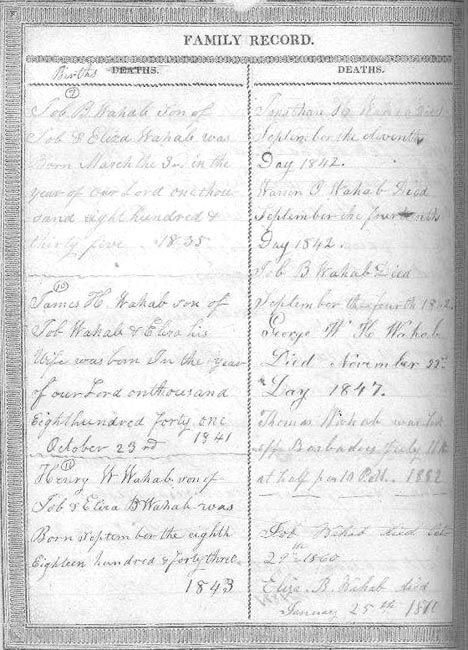 FAMILY RECORD.
Births DEATHS.
Job B. Wahab son of
Job & Eliza Wahab was
Born March the 3 in the
year of our Lord one thou
sand eight hundred &
thirty five 1835
James H. Wahab son of
Job Wahab & Eliza his
Wife was born In the year
of our Lord onthousand
Eighthundred Forty one
October 23rd 1841
11
Henry W Wahab son of
Job & Eliza B Wahab was
Born September the eighth
Eighteen hundred & forty three
1843
DEATHS.
September the eleventh
Day 1842.
Warren Wahab Died
September the fourteenth
Day 1842.
Job B Wahab Died
September the fourth 1842.
George W H Wahab
Died November
Day 1847.
Thomas Wahab was lost
off Barbadoes July
at half 10 1882
Job Wahab died Oct
29th 1860
Eliza B. Wahab died
January 25th